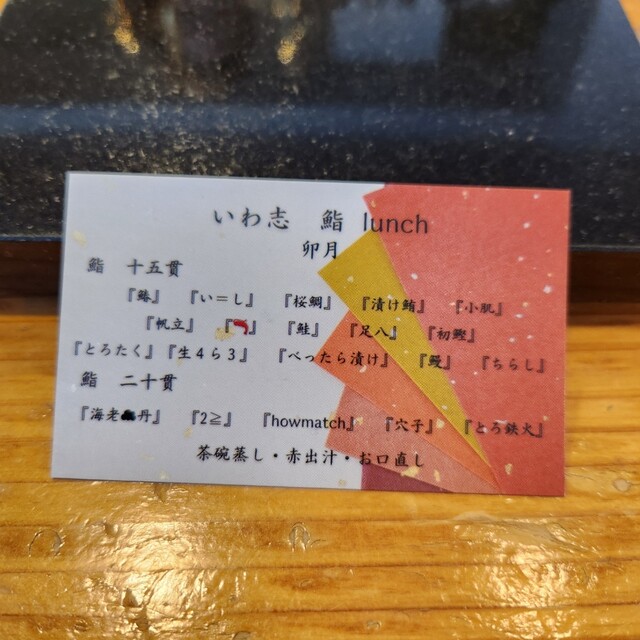 いわ志 鮨 lunch
卯月
鮨 十五貫
『鰆』 『い＝し』 『桜鯛』 『漬け鮪』 『小肌』
『帆立』 『🦐』 『鮭』 『足八』 『初鰹』
『とろたく』 『生４ら３』 『べったら漬け』 『鰻』 『ちらし』
鮨 二十貫
『海老 丹』 『2≧』 『howmatch』 『穴子』 『とろ鉄火』
茶碗蒸し・赤出汁・お口直し